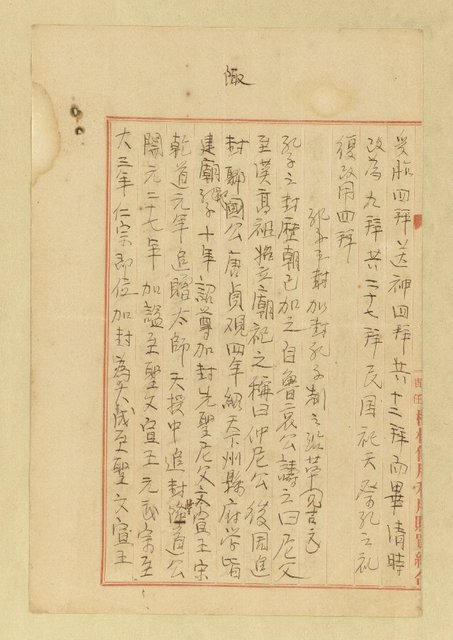 受胙四拜送神四拜共十二拜而畢清時
改為九拜共二十七拜民国祀天祭孔之礼
復改用四拜
孔子之封加封孔子制
孔子之封歴朝已加之自魯哀公誄之曰尼父
至漢高祖始立廟祀之稱曰仲尼公後周進
封鄒國公唐貞觀四年組天下州縣府学皆
建廟十年詔尊加封先聖尼父文宣王宋
乾道元年追贈太師天授中追封隆道公
開元二十七年加謚至聖文宣王元武宗至
大三年仁宗即位加封為大成至聖文宣王